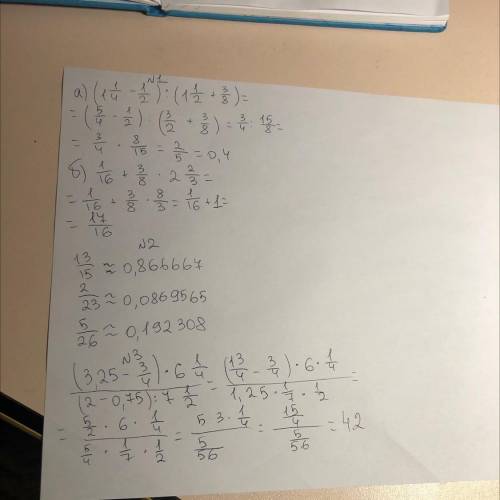 N1
а) (1 1/4 - 1/2) : (1 1/2 + 3/8) =
= (5/4 - 1/2) : (3/2 + 3/8) = 3/4 : 15/8 =
= 3/4 · 8/15 = 2/5 = 0,4
б) 1/16 + 3/8 · 2 2/3 =
= 1/16 + 3/8 · 8/3 = 1/16 + 1 =
= 17/16
N2
13/15 ≈ 0,866667
2/23 ≈ 0,0869565
5/26 ≈ 0,192308
N3
(3,25 - 3/4) · 6 1/4 / (2 - 0,75) : 7 1/2 = (13/4 - 3/4) · 6 · 1/4 / 1,25 · 1/7 · 1/2 =
= 5/2 · 6 · 1/4 / 5/4 · 1/7 · 1/2 = 5 3 · 1/4 / 5/56 = 15/4 / 5/56 = 42